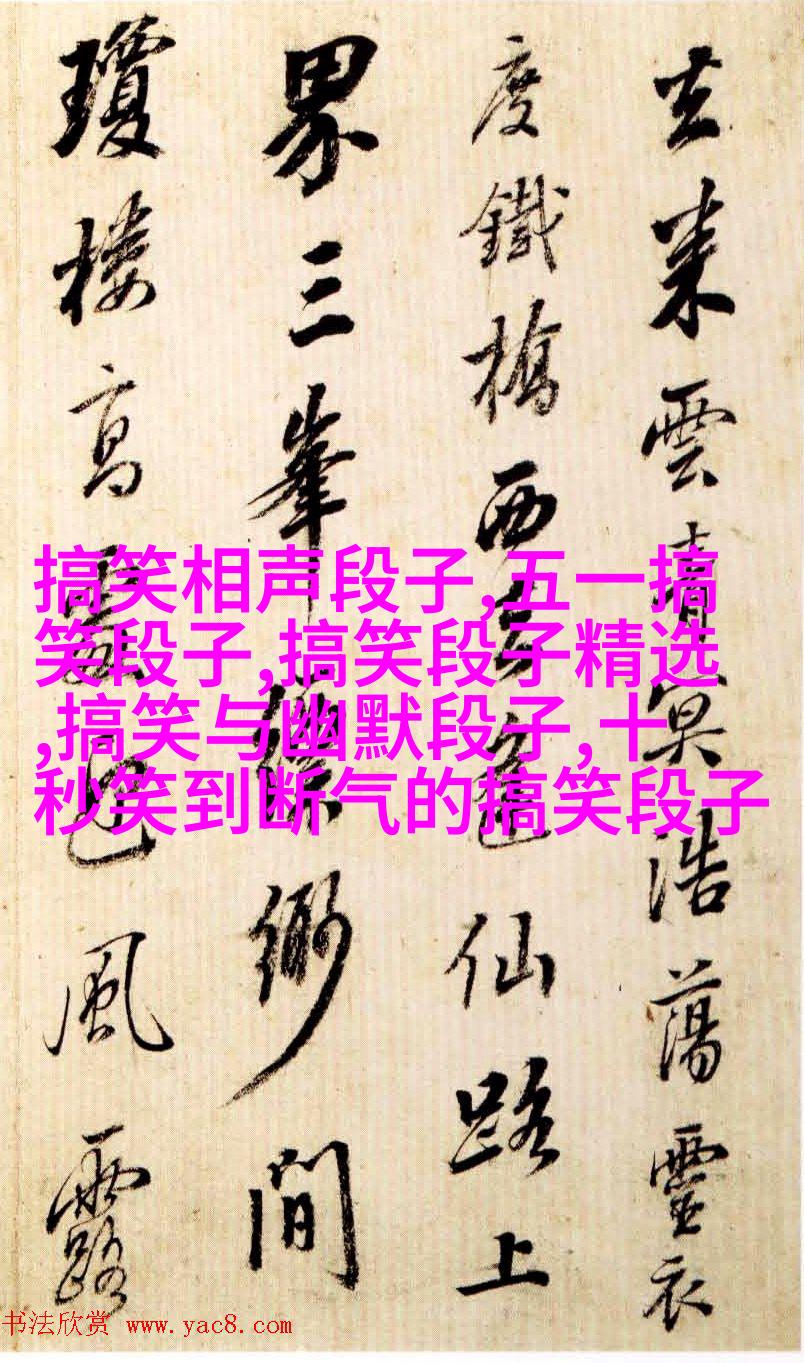 搞笑相声段子,五一搞
笑段子,搞笑段子精选
,搞笑与幽默段子,十
秒笑到断气的搞笑段子
来雲青冥浩蕩靈衣
度鐵橋西仙路上
界三峯縹緲間
瓊樓高處風露
书法欣赏 www.yac8.com